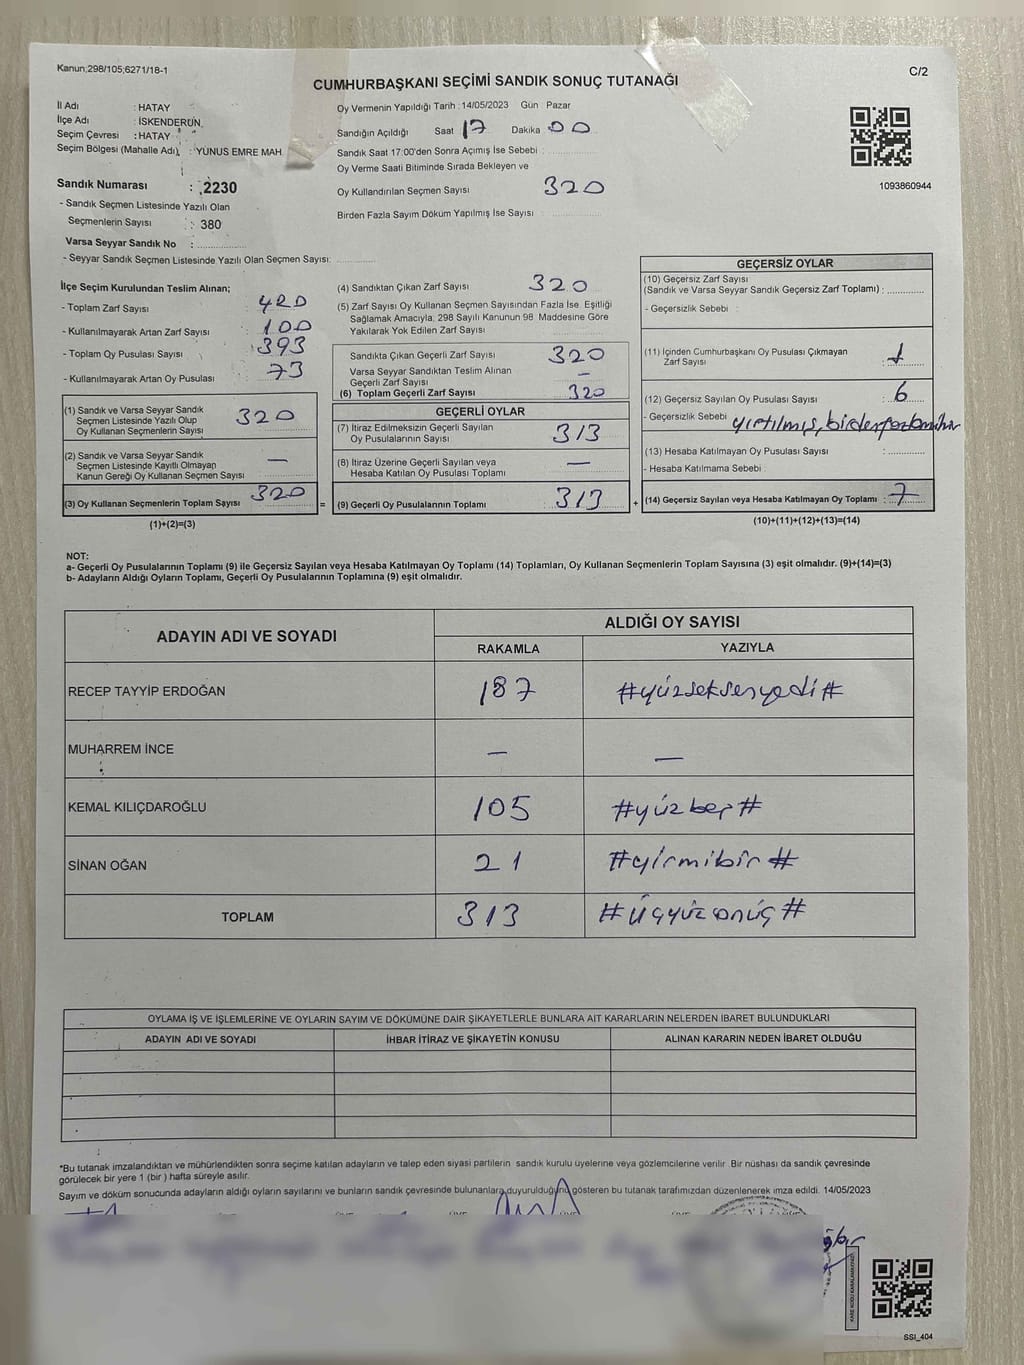 Kanun;298/105;6271/18-1
C/2
CUMHURBAŞKANI SEÇİMİ SANDIK SONUÇ TUTANAĞI
İl Adı : HATAY
İlçe Adı : İSKENDERUN
Seçim Çevresi : HATAY
Seçim Bölgesi (Mahalle Adı) : YUNUS EMRE MAH.
Sandık Numarası : 2230
- Sandık Seçmen Listesinde Yazılı Olan
Seçmenlerin Sayısı : 380
Varsa Seyyar Sandık No :
- Seyyar Sandık Seçmen Listesinde Yazılı Olan Seçmen Sayısı:
Oy Vermenin Yapıldığı Tarih : 14/05/2023 Gün : Pazar
Sandığın Açıldığı Saat 17 Dakika 00
Sandık Saat 17:00'den Sonra Açımış İse Sebebi :
Oy Verme Saati Bitiminde Sırada Bekleyen ve
Oy Kullandırılan Seçmen Sayısı 320
Birden Fazla Sayım Döküm Yapılmış İse Sayısı :
1093860944
İlçe Seçim Kurulundan Teslim Alınan;
- Toplam Zarf Sayısı : 420
- Kullanılmayarak Artan Zarf Sayısı : 100
- Toplam Oy Pusulası Sayısı : 393
- Kullanılmayarak Artan Oy Pusulası : 73
(1) Sandık ve Varsa Seyyar Sandık
Seçmen Listesinde Yazılı Olup
Oy Kullanan Seçmenlerin Sayısı 320
(2) Sandık ve Varsa Seyyar Sandık
Seçmen Listesinde Kayıtlı Olmayan
Kanun Gereği Oy Kullanan Seçmen Sayısı —
(3) Oy Kullanan Seçmenlerin Toplam Sayısı 320 =
(1)+(2)=(3)
(4) Sandıktan Çıkan Zarf Sayısı 320
(5) Zarf Sayısı Oy Kullanan Seçmen Sayısından Fazla İse, Eşitliği
Sağlamak Amacıyla; 298 Sayılı Kanunun 98. Maddesine Göre
Yakılarak Yok Edilen Zarf Sayısı
Sandıkta Çıkan Geçerli Zarf Sayısı 320
Varsa Seyyar Sandıktan Teslim Alınan
Geçerli Zarf Sayısı —
(6) Toplam Geçerli Zarf Sayısı 320
GEÇERLİ OYLAR
(7) İtiraz Edilmeksizin Geçerli Sayılan
Oy Pusulasının Sayısı 313
(8) İtiraz Üzerine Geçerli Sayılan veya
Hesaba Katılan Oy Pusulası Toplamı —
(9) Geçerli Oy Pusulalarının Toplamı 313 +
GEÇERSİZ OYLAR
(10) Geçersiz Zarf Sayısı
(Sandık ve Varsa Seyyar Sandık Geçersiz Zarf Toplamı) :
- Geçersizlik Sebebi :
(11) İçinden Cumhurbaşkanı Oy Pusulası Çıkmayan
Zarf Sayısı : 1
(12) Geçersiz Sayılan Oy Pusulası Sayısı : 6
- Geçersizlik Sebebi yırtılmış,
(13) Hesaba Katılmayan Oy Pusulası Sayısı :
- Hesaba Katılmama Sebebi :
(14) Geçersiz Sayılan veya Hesaba Katılmayan Oy Toplamı : 7
(10)+(11)+(12)+(13)=(14)
NOT:
a- Geçerli Oy Pusulalarının Toplamı (9) ile Geçersiz Sayılan veya Hesaba Katılmayan Oy Toplamı (14) Toplamları, Oy Kullanan Seçmenlerin Toplam Sayısına (3) eşit olmalıdır. (9)+(14)=(3)
b- Adayların Aldığı Oyların Toplamı, Geçerli Oy Pusulalarının Toplamına (9) eşit olmalıdır.
ADAYIN ADI VE SOYADI
ALDIĞI OY SAYISI
RAKAMLA YAZIYLA
RECEP TAYYİP ERDOĞAN 187 #yüzseksenyedi#
MUHARREM İNCE — —
KEMAL KILIÇDAROĞLU 105 #yüzbeş#
SİNAN OĞAN 21 #yirmibir#
TOPLAM 313 #üçyüzonüç#
OYLAMA İŞ VE İŞLEMLERİNE VE OYLARIN SAYIM VE DÖKÜMÜNE DAİR ŞİKAYETLERLE BUNLARA AİT KARARLARIN NELERDEN İBARET BULUNDUKLARI
ADAYIN ADI VE SOYADI İHBAR İTİRAZ VE ŞİKAYETİN KONUSU ALINAN KARARIN NEDEN İBARET OLDUĞU
*Bu tutanak imzalandıktan ve mühürlendikten sonra seçime katılan adayların ve talep eden siyasi partilerin sandık kurulu üyelerine veya gözlemcilerine verilir. Bir nüshası da sandık çevresinde
görülecek bir yere 1 (bir ) hafta süreyle asılır.
Sayım ve döküm sonucunda adayların aldığı oyların sayılarını ve bunların sandık çevresinde bulunanlara duyurulduğunu gösteren bu tutanak tarafımızdan düzenlenerek imza edildi. 14/05/2023
SSI_404